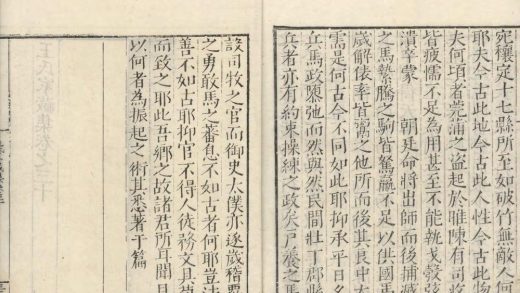 宛穰定十七縣所至如破竹無敵人何
耶夫今古此地今古此人性今古此
夫何頃者莞蒲之盜起於睢陳有司
皆疲懦不足為用甚至不能執戈彀弦
潰幸蒙 朝廷命將出師而後捕滅
之馬縶騰之駒皆駑羸不足以供國馬
歲解俵率皆鬻之他所而後其良中太
需是何古今不同如此耶抑承平日久
兵馬政隳弛而然與然民間壯丁郡縣
兵者亦有約束操練之政矣戶養之馬
設司牧之官而御史太僕亦逐歲稽覈
之勇敢馬之蕃息不如古者何耶豈法
善不如古耶抑官不得人徒務文具
而致之耶此吾鄉之故諸君所耳聞目
以何者為振起之術其悉著于篇
王氏家藏集卷之三十